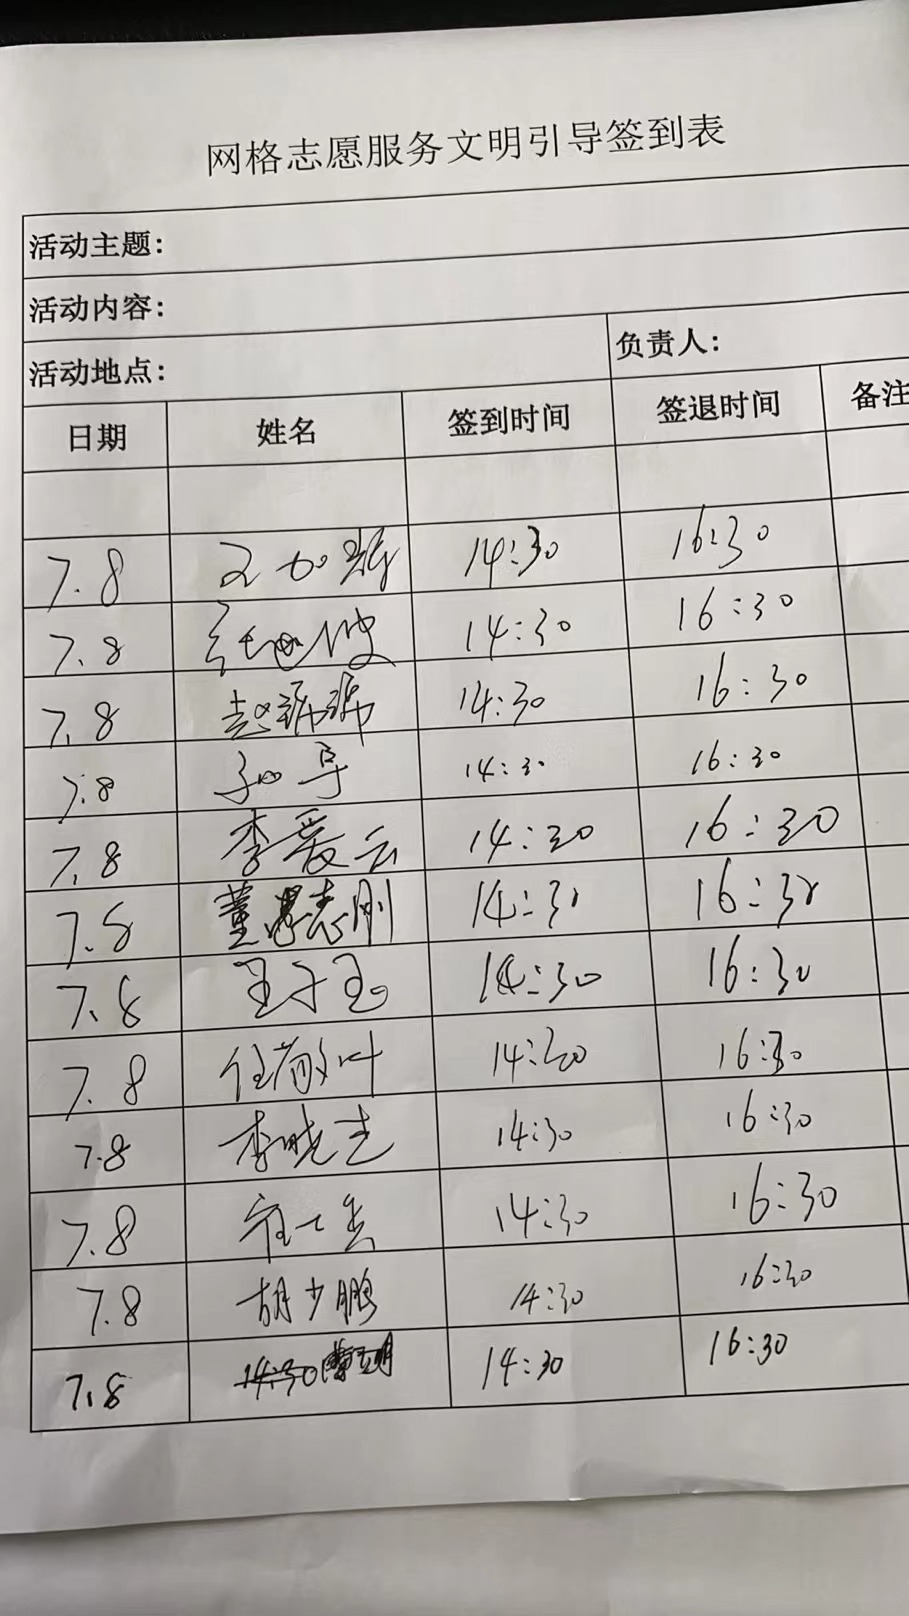 网格志愿服务文明引导签到表
活动主题:
活动内容:
活动地点: 负责人:
日期 姓名 签到时间 签退时间 备注
7.8 14:30 16:30
7.8 14:30 16:30
7.8 14:30 16:30
7.8 14:30 16:30
7.8 李爱云 14:30 16:30
7.8 董志刚 14:30 16:30
7.8 王子玉 14:30 16:30
7.8 任敬叶 14:30 16:30
7.8 李晓志 14:30 16:30
7.8 14:30 16:30
7.8 胡少鹏 14:30 16:30
7.8 14:30 16:30